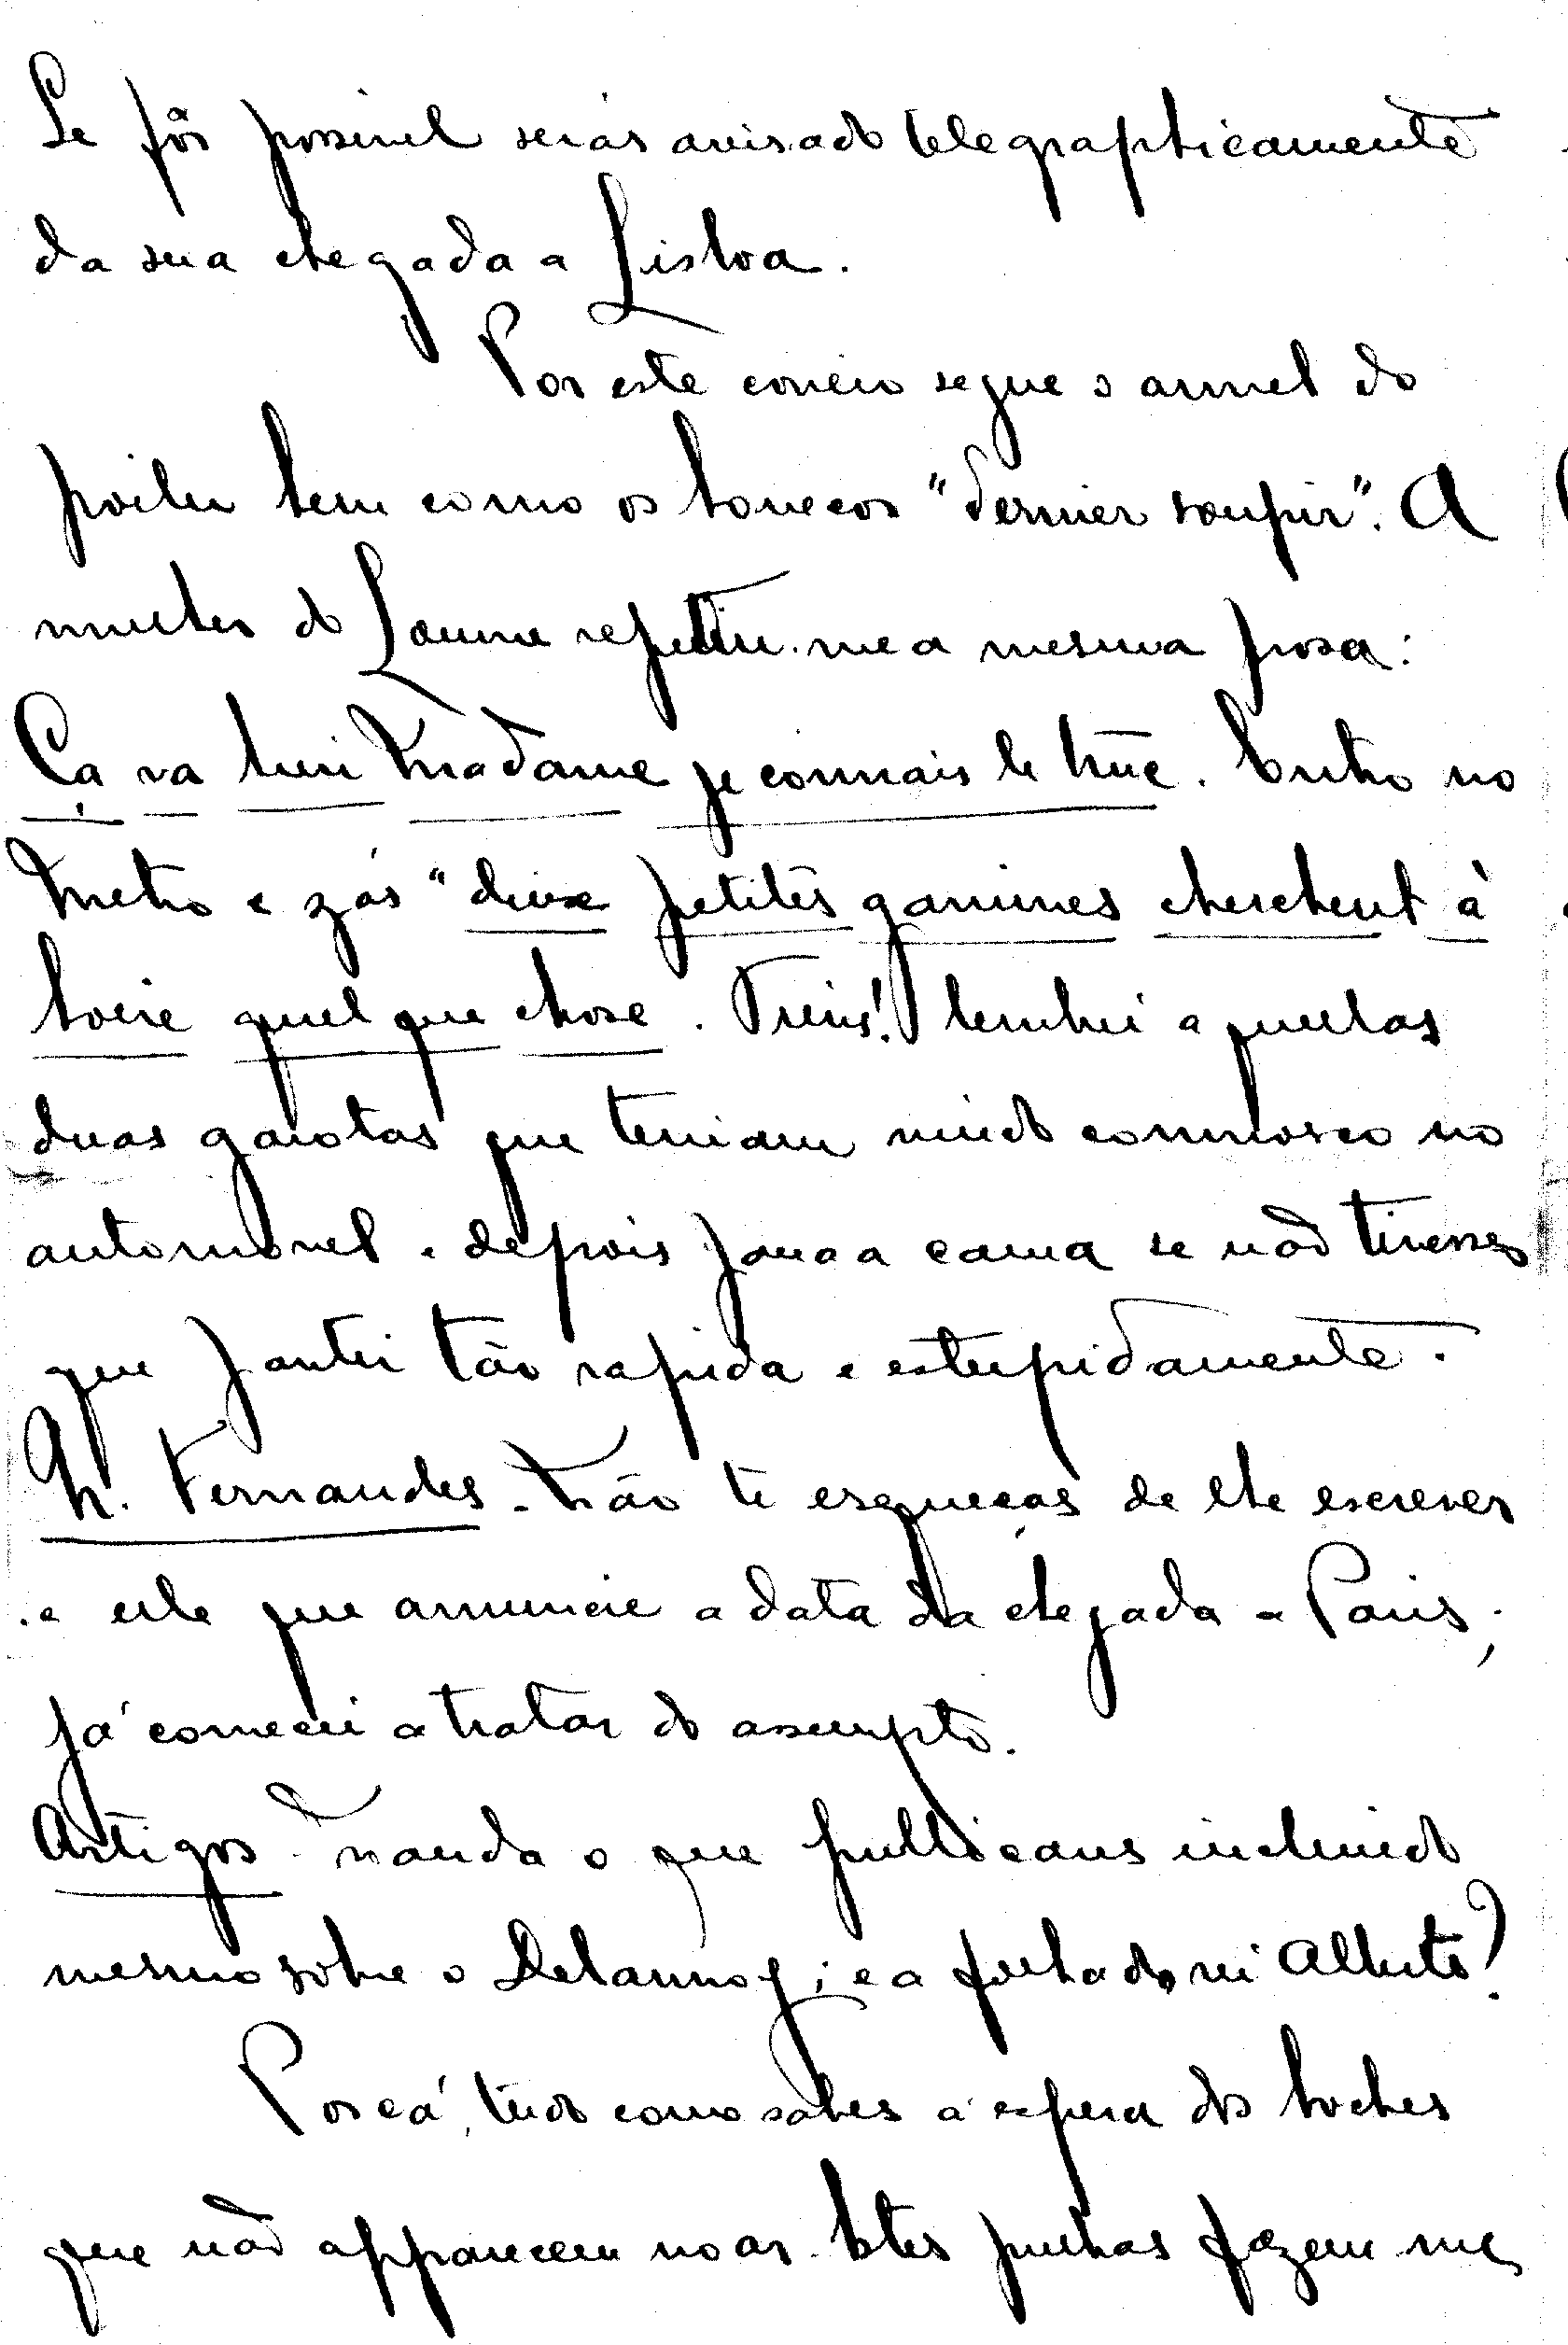 Se fôr possivel serás avisado telegraphicamente
da sua chegada a Lisboa.
Por este correio segue o annel do
poilu bem como os bonecos "dernier soupir". A
mulher do repetiu-me a mesma prosa:
Ça va bien Madame je connais le truc. Entro no
Metro e zás "deux petites gamines cherchent à
boire quelque chose. Treins! lembrei aquellas
duas garotas que teriam vindo comnosco no
automovel e depois para a cama se não tivesses
que jantei tão rapida e estupidamente.
M. Fernandes - Não te esqueças de lhe escrever
e elle que annuncie a data da chegada a Paris;
já comecei a tratar do assumpto.
Artigos - Manda o que publicares incluindo
mesmo sobre o Delannoy; e a folha do rei Alberto?
Por cá, tudo como sabes á espera dos boches
que não apparecem no ar. Estes pulhas fazem-me